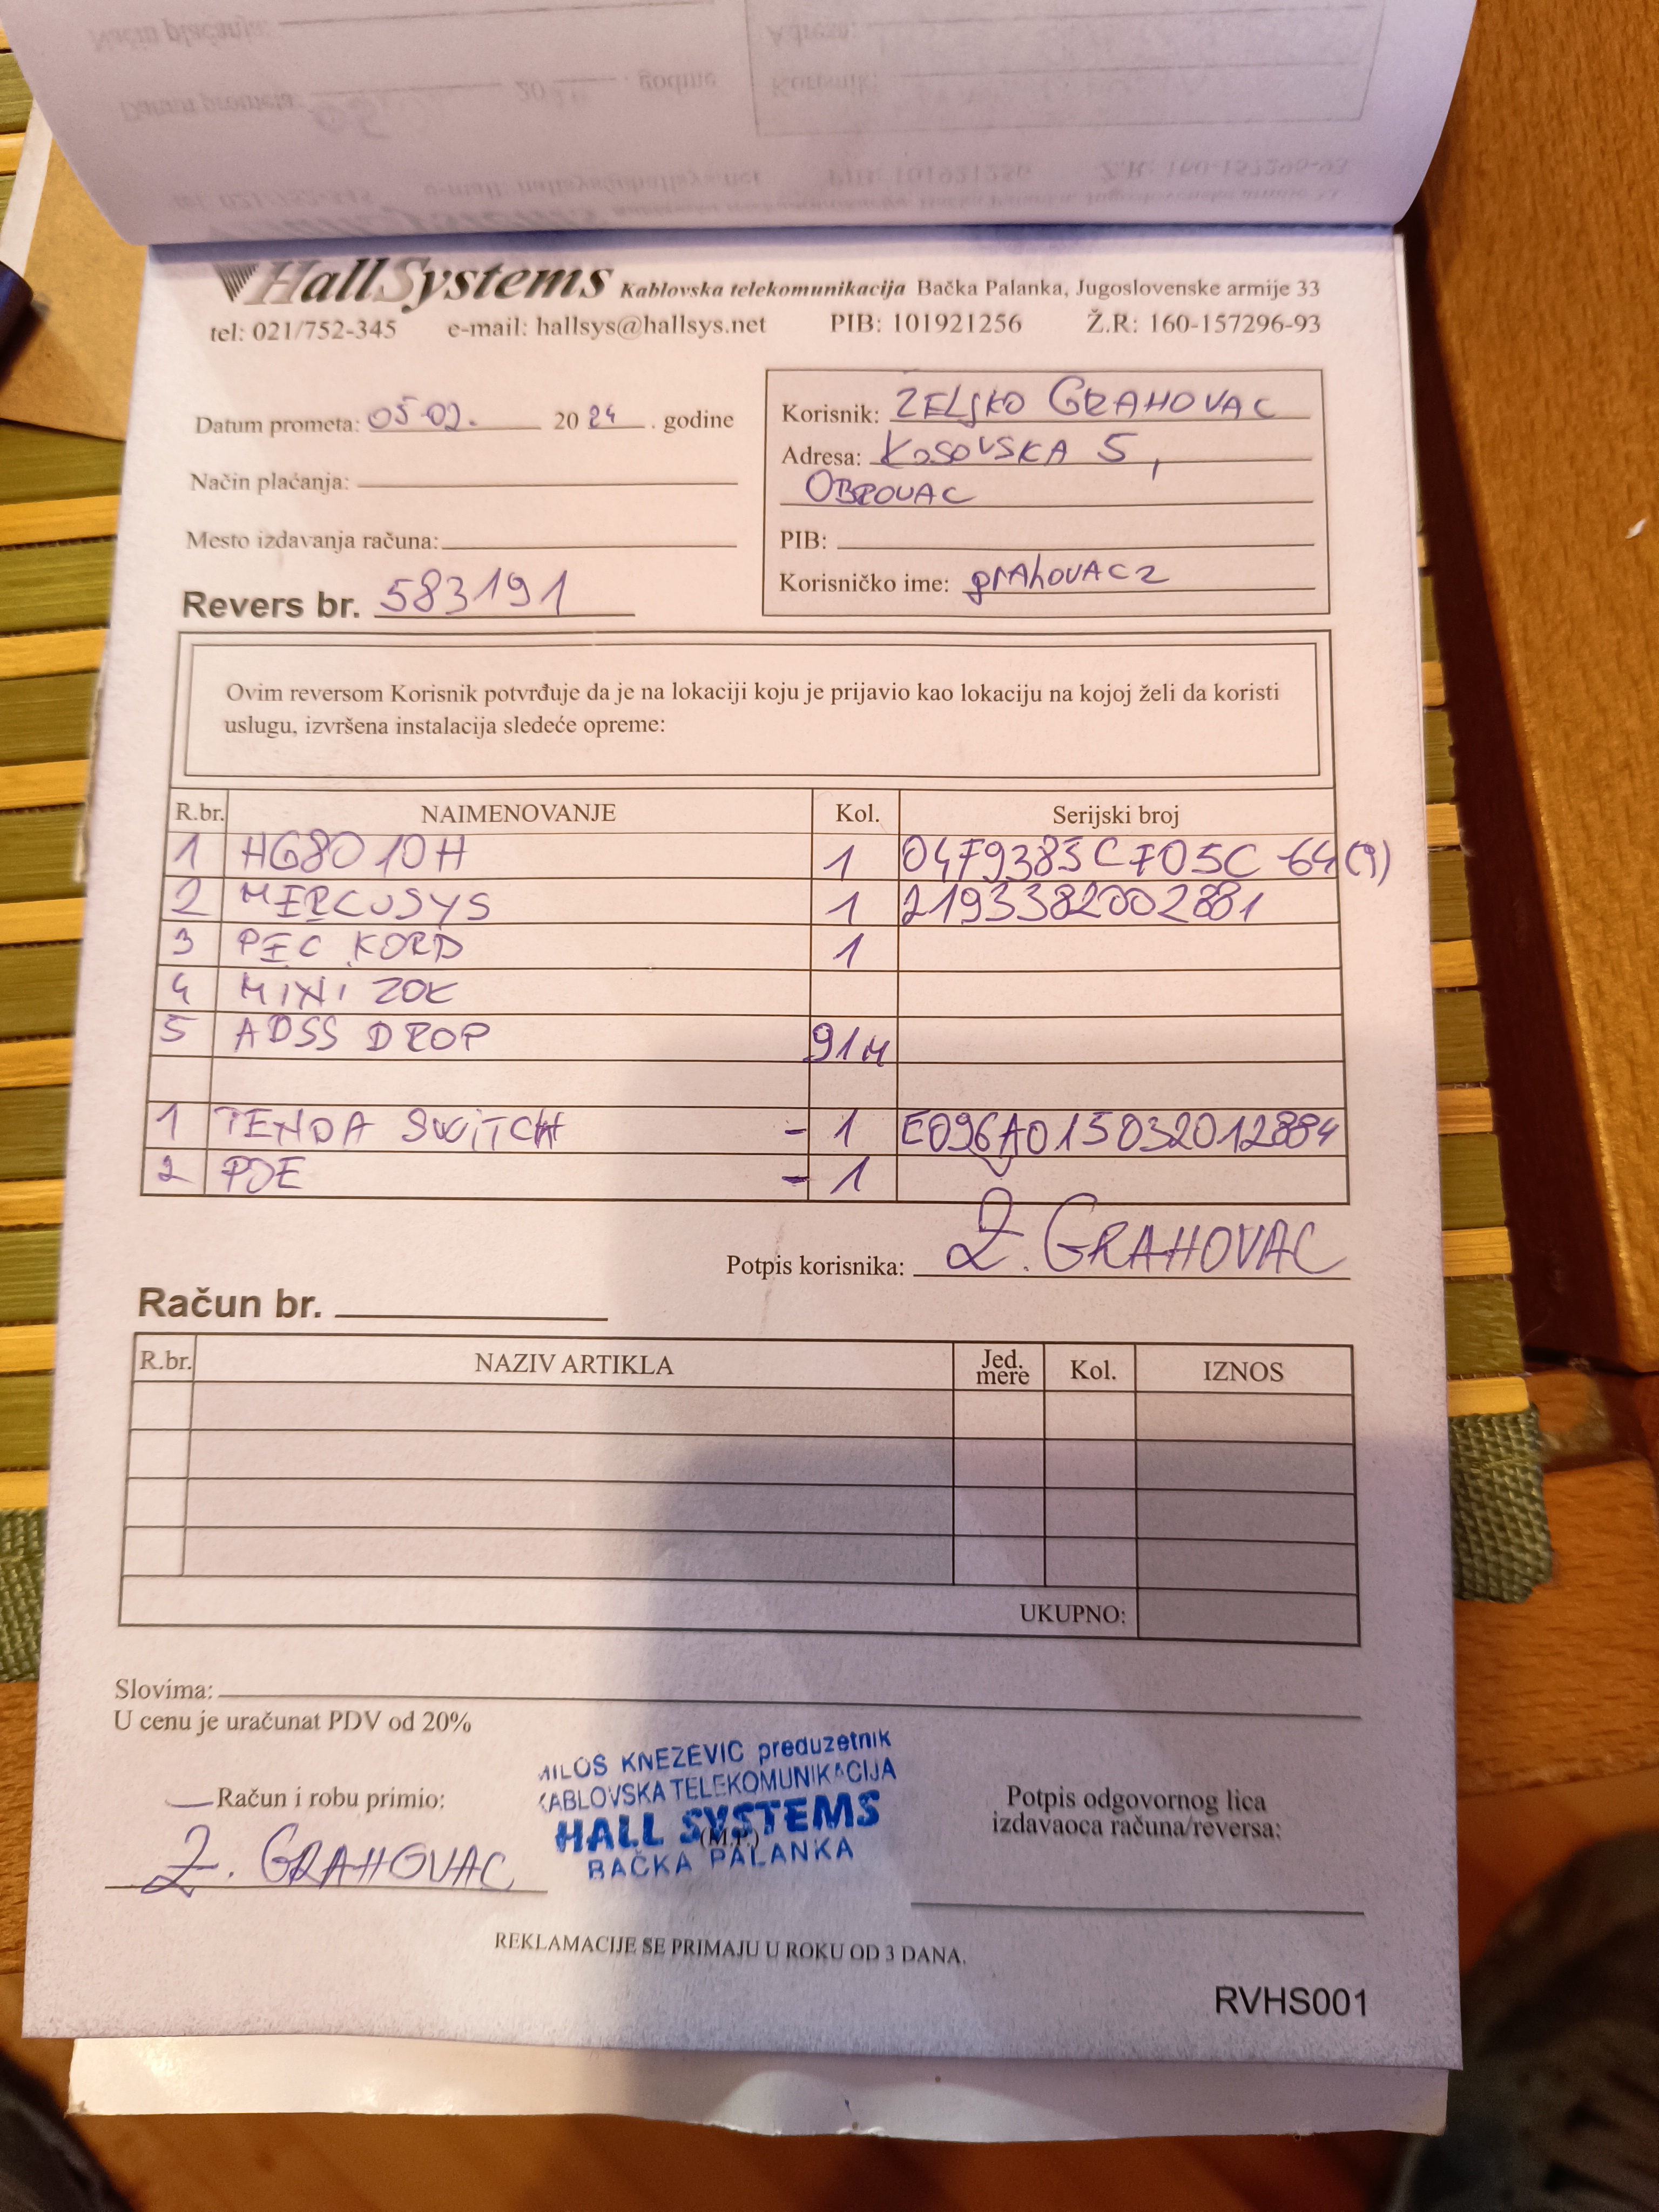 HallSystems Kablovska telekomunikacija Bačka Palanka, Jugoslovenske armije 33
tel: 021/752-345 e-mail: hallsys@hallsys.net PIB: 101921256 Ž.R: 160-157296-93
Datum prometa: 05 02. 20 24 . godine
Način plaćanja:
Mesto izdavanja računa:
Revers br. 583191
Korisnik: ZELJKO GRAHOVAC
Adresa: KOSOVSKA 5,
OBROVAC
PIB:
Korisničko ime: grahovacz
Ovim reversom Korisnik potvrđuje da je na lokaciji koju je prijavio kao lokaciju na kojoj želi da koristi
uslugu, izvršena instalacija sledeće opreme:
R.br. NAIMENOVANJE Kol. Serijski broj
1 HG8010H 1 04F9385CF05C -64(9)
2 MERCUSYS 1 2193382002881
3 PEC KORD 1
4 MINI ZOK
5 ADSS DROP 91m
1 TENDA SWITCH - 1 E096A015032012884
2 POE - 1
Potpis korisnika: Ž. GRAHOVAC
Račun br.
R.br. NAZIV ARTIKLA Jed. mere Kol. IZNOS
UKUPNO:
Slovima:
U cenu je uračunat PDV od 20%
Račun i robu primio:
Ž. GRAHOVAC
MILOS KNEZEVIC preduzetnik
KABLOVSKA TELEKOMUNIKACIJA
HALL SYSTEMS
(M.P.)
BAČKA PALANKA
Potpis odgovornog lica
izdavaoca računa/reversa:
REKLAMACIJE SE PRIMAJU U ROKU OD 3 DANA.
RVHS001